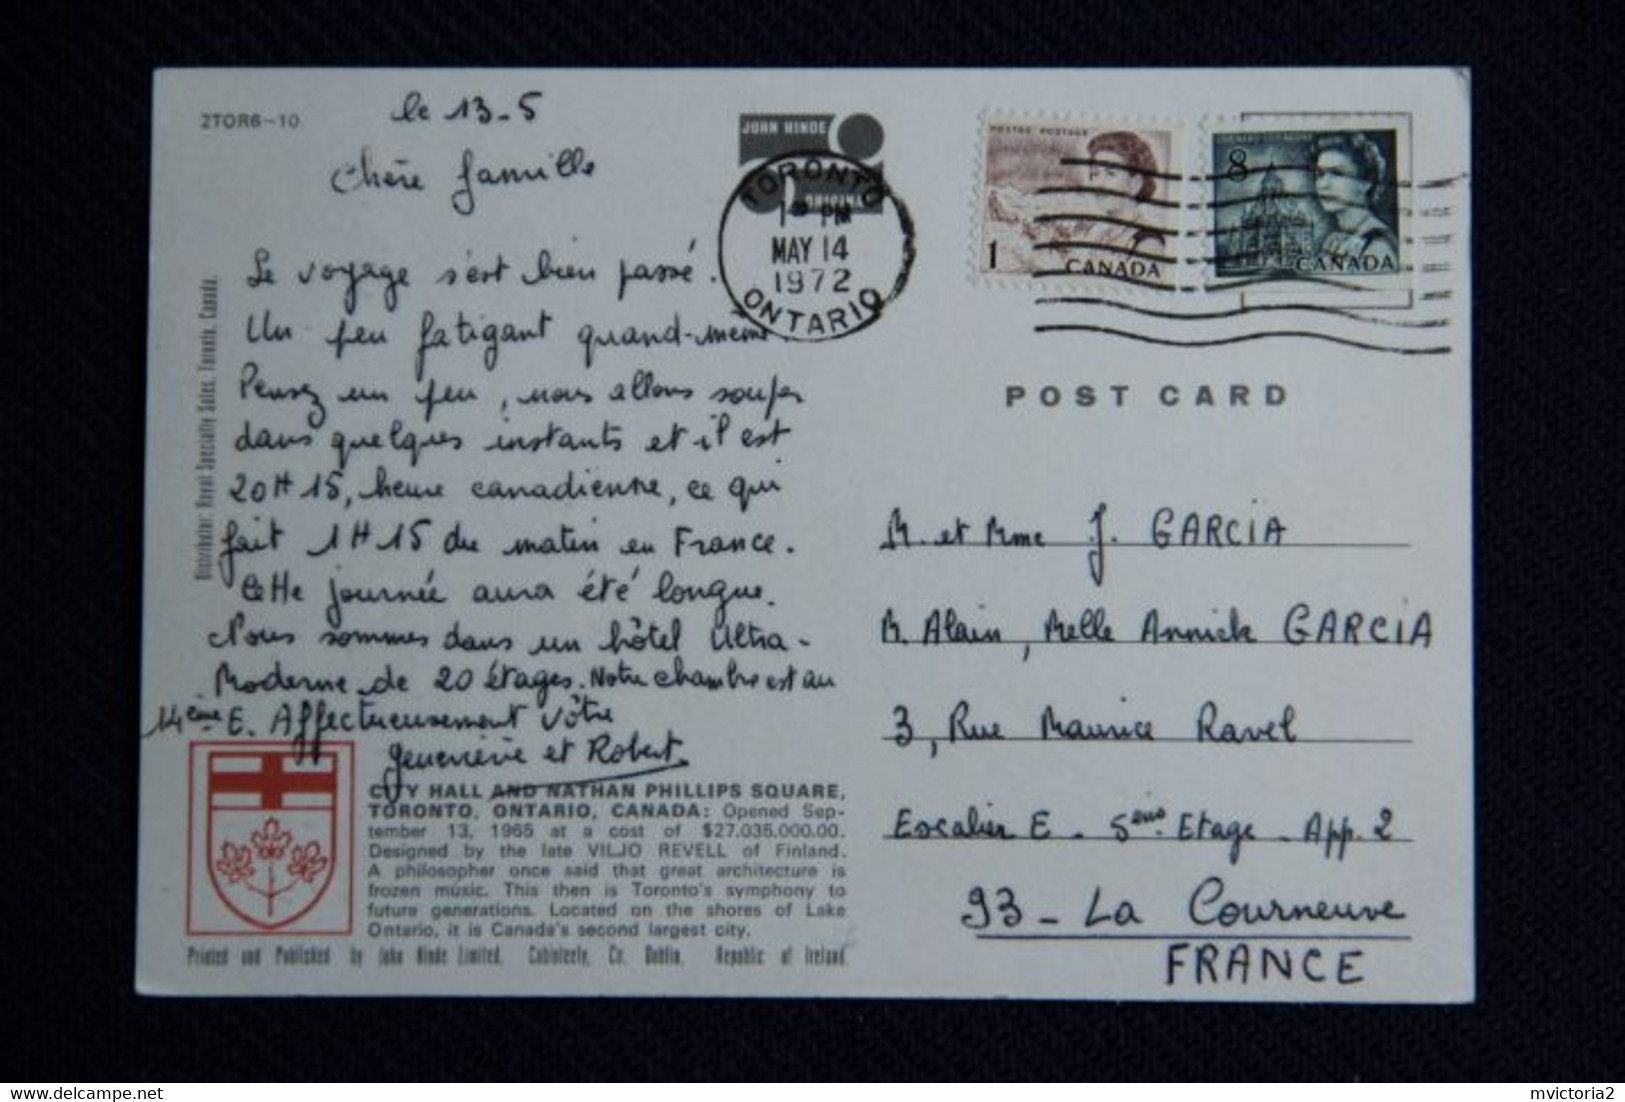 2TOR6-10
le 13-5
Chère famille
Le voyage s'est bien passé.
Un peu fatigant quand-même
Pensez un peu, nous allons souper
dans quelques instants et il est
20H15, heure canadienne, ce qui
fait 1H15 du matin en France.
Cette journée aura été longue.
Nous sommes dans un hôtel Ultra-
Moderne de 20 étages. Notre chambre est au
14ème E. Affectueusement vôtre
Geneviève et Robert
CITY HALL AND NATHAN PHILLIPS SQUARE,
TORONTO, ONTARIO, CANADA: Opened Sep-
tember 13, 1965 at a cost of $27.035.000.00.
Designed by the late VILJO REVELL of Finland.
A philosopher once said that great architecture is
frozen music. This then is Toronto's symphony to
future generations. Located on the shores of Lake
Ontario, it is Canada's second largest city.
Printed and Published by John Hinde Limited. Cabinteely, Co. Dublin, Republic of Ireland.
Distributor: Royal Specialty Sales, Toronto, Canada.
JOHN HINDE
TORONTO
PM
MAY 14
1972
ONTARIO
POSTES POSTAGE
1
CANADA
8
CANADA
POST CARD
M. et Mme J. GARCIA
M. Alain, Melle Annick GARCIA
3, Rue Maurice Ravel
Escalier E - 5ème Etage - App. 2
93 - La Courneuve
FRANCE
mvictoria2